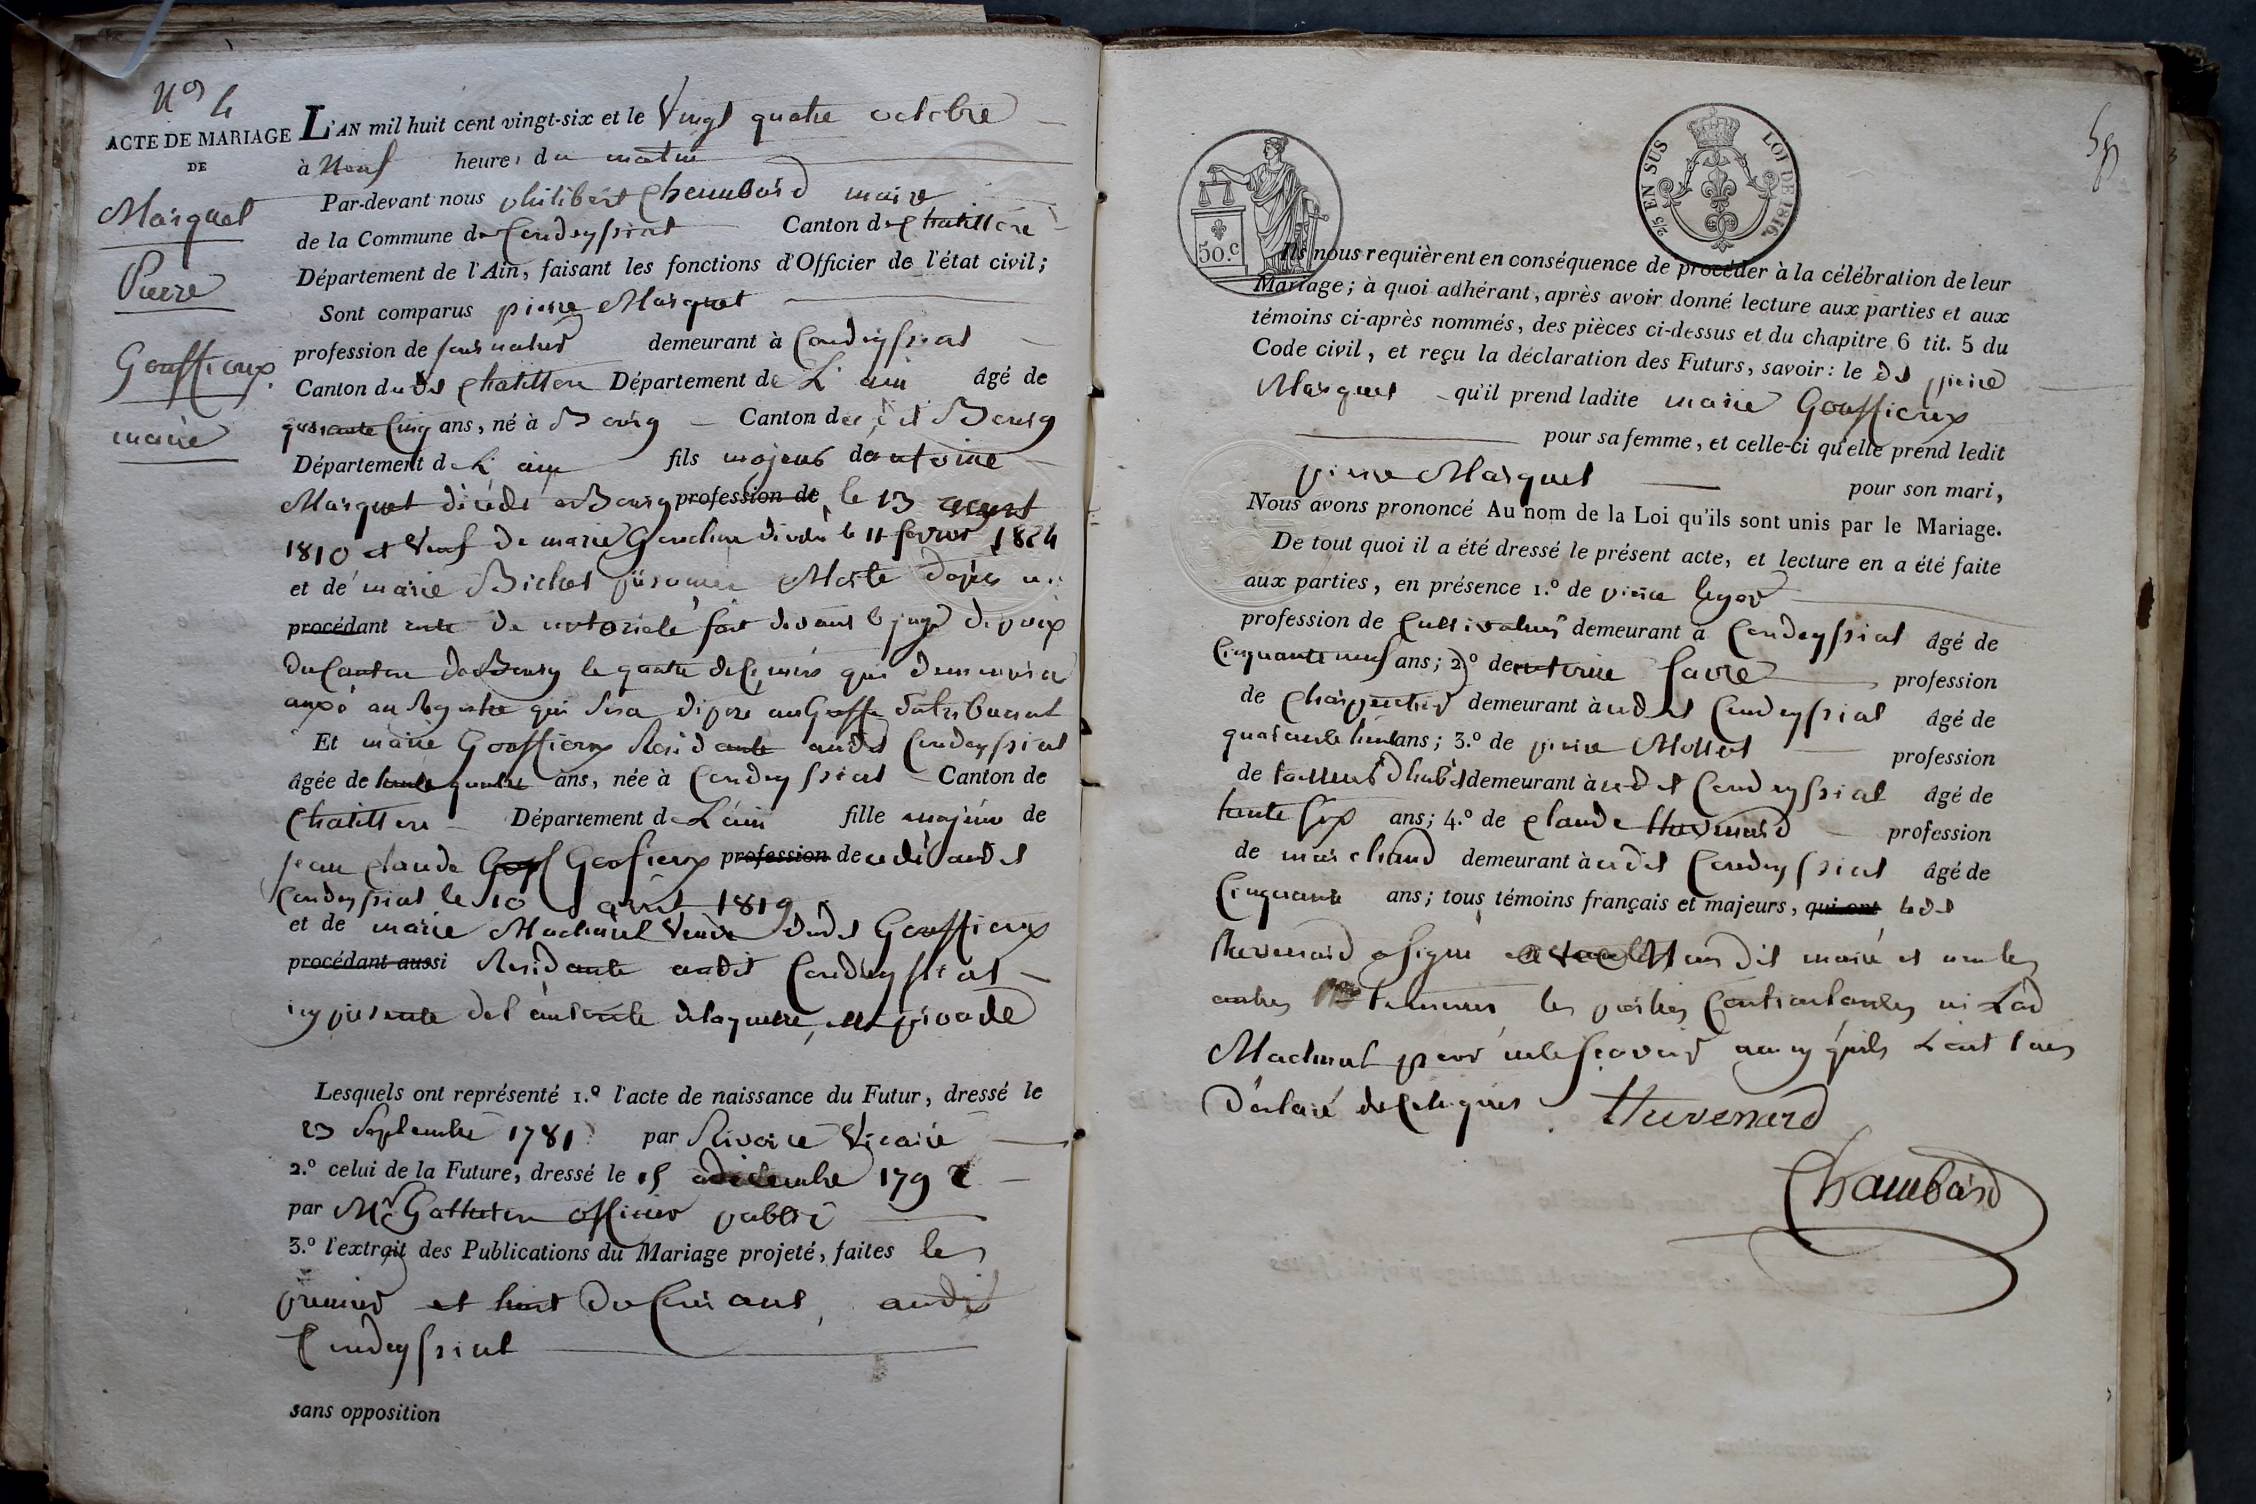 N° 4
ACTE DE MARIAGE
DE
Marquet
Pierre
Gouffieux
marie
L'AN mil huit cent vingt-six et le Vingt quatre octobre
à Neuf heures du matin
Par-devant nous philibert Chambard maire
de la Commune de Condeyssiat Canton de Chatillon
Département de l'Ain, faisant les fonctions d'Officier de l'état civil;
Sont comparus pierre Marquet
profession de journalier demeurant à Condeyssiat
Canton dudt Chatillon Département de L'ain âgé de
quarante Cinq ans, né à Bourg Canton de Bourg
Département de L'ain fils majeur de antoine
Marquet décédé a Bourg profession de le 13
1810 et Veuf de marie décédée le 11 fevrier 1824
et de marie Bichet
procédant acte de notoriété fait devant le juge de paix
du Canton de Bourg le quatre de Ce mois qui demeurera
au Registre qui sera déposé au Greffe du tribunal
Et marie Gouffieux Residante audit Condeyssiat
âgée de trente quatre ans, née à Condeyssiat Canton de
Chatillon Département de L'ain fille majeure de
jean Claude Goufieux profession de décédé audit
Condeyssiat le 10 avril 1819
et de marie Machurat Veuve dudt Gouffieux
procédant aussi Residante audit Condeyssiat
icy présente de l'autorité de laquelle elle procede
Lesquels ont représenté 1.º l'acte de naissance du Futur, dressé le
23 Septembre 1781 par Rivoire Vicaire
2.º celui de la Future, dressé le 15 décembre 1792
par Mr officier public
3.º l'extrait des Publications du Mariage projeté, faites les
premier et huit du Courant, audit
Condeyssiat
sans opposition
50.C
2/5 EN SUS LOI DE 1816.
Ils nous requièrent en conséquence de procéder à la célébration de leur
Mariage; à quoi adhérant, après avoir donné lecture aux parties et aux
témoins ci-après nommés, des pièces ci-dessus et du chapitre 6 tit. 5 du
Code civil, et reçu la déclaration des Futurs, savoir: le dt pierre
Marquet qu'il prend ladite marie Gouffieux
pour sa femme, et celle-ci qu'elle prend ledit
pierre Marquet pour son mari,
Nous avons prononcé Au nom de la Loi qu'ils sont unis par le Mariage.
De tout quoi il a été dressé le présent acte, et lecture en a été faite
aux parties, en présence 1.º de pierre
profession de Cultivateur demeurant à Condeyssiat âgé de
Cinquante neuf ans; 2.º de antoine favre profession
de Charpentier demeurant à udit Condeyssiat âgé de
quarante huit ans; 3.º de pierre Mollet profession
de tailleur d'habit demeurant à udit Condeyssiat âgé de
trente six ans; 4.º de Claude Huvenard profession
de marchand demeurant à udit Condeyssiat âgé de
Cinquante ans; tous témoins français et majeurs, qui ont ledt
huvenard a signé avec nous dit maire et non les
autres temoins les parties Contractantes ni Lad
Machurat pour ne le scavoir ainsy qu'ils L'ont tous
Déclaré de Ce requis
Huvenard
Chambard